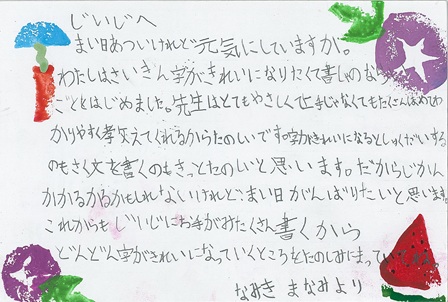 じいじへ
まい日あついけれど元気にしていますか。
わたしはさいきん字がきれいになりたくて書しのなら
ごとをはじめました。先生はとてもやさしくて上手じゃなくてもたくさんほめて
かりやすく教えてくれるからたのしいです。字がきれいになるとしゅくだいする
のもさく文を書くのもきっとたのしいと思います。だからじかん
かかるかるかもしれないけれど、まい日がんばりたいと思います。
これからもじいじにお手がみたくさん書くから
どんどん字がきれいになっていくところをたのしみにまっていてね。
なみき まなみより